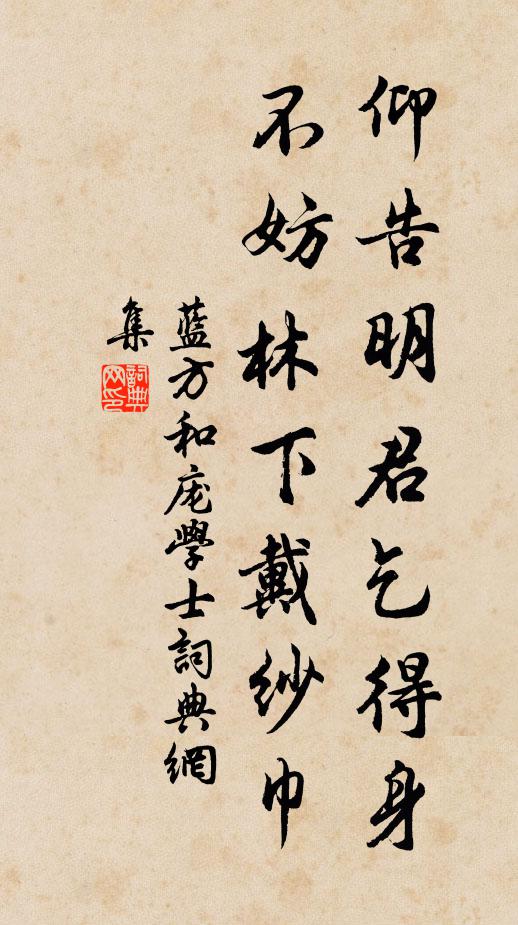 仰告明君乞得身
不妨林下戴纱巾
蓝方和庞學士詞典網
集
詞典
网印